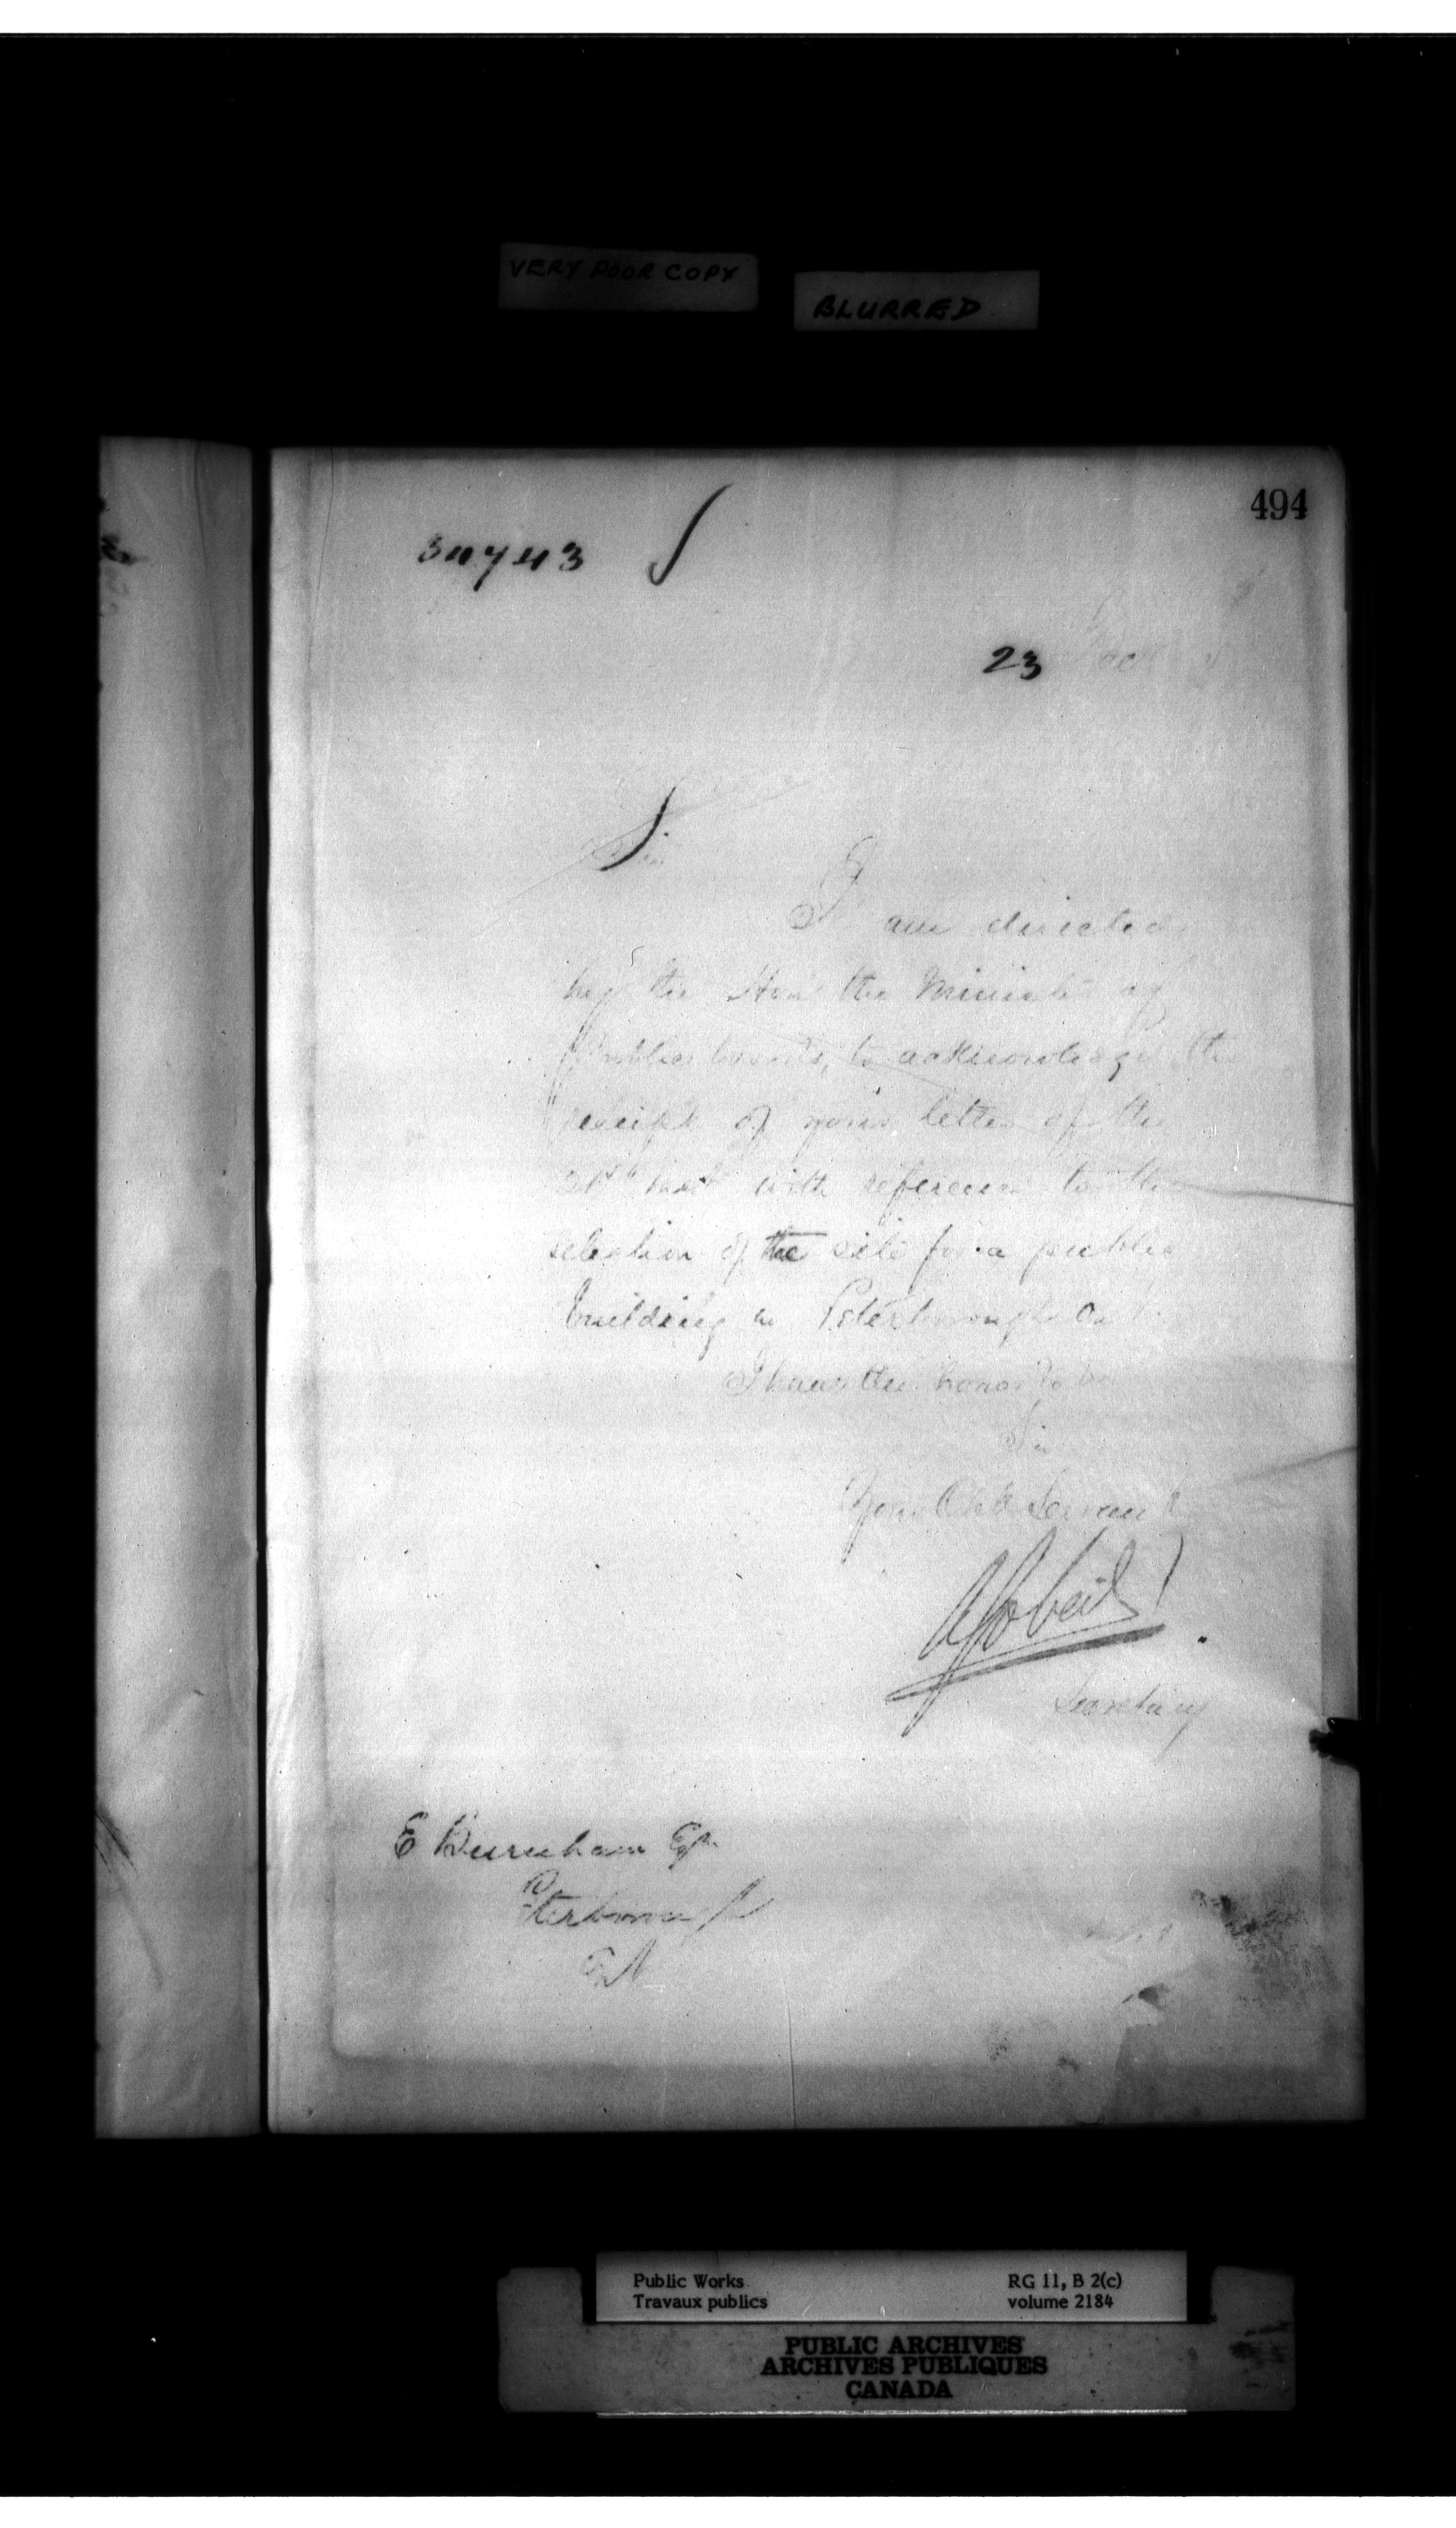 VERY POOR COPY
BLURRED
494
34743
23
Sir
I am directed
by the Hon the Minister of
Public Works, to acknowledge the
receipt of your letter of the
inst with reference to the
selection of the site for a public
building in Peterborough
I have the honor to be
Sir
Your Obt Servant
Secretary
E Burnham Esqr
Peterborough
Public Works
Travaux publics
RG 11, B 2(c)
volume 2184
PUBLIC ARCHIVES
ARCHIVES PUBLIQUES
CANADA